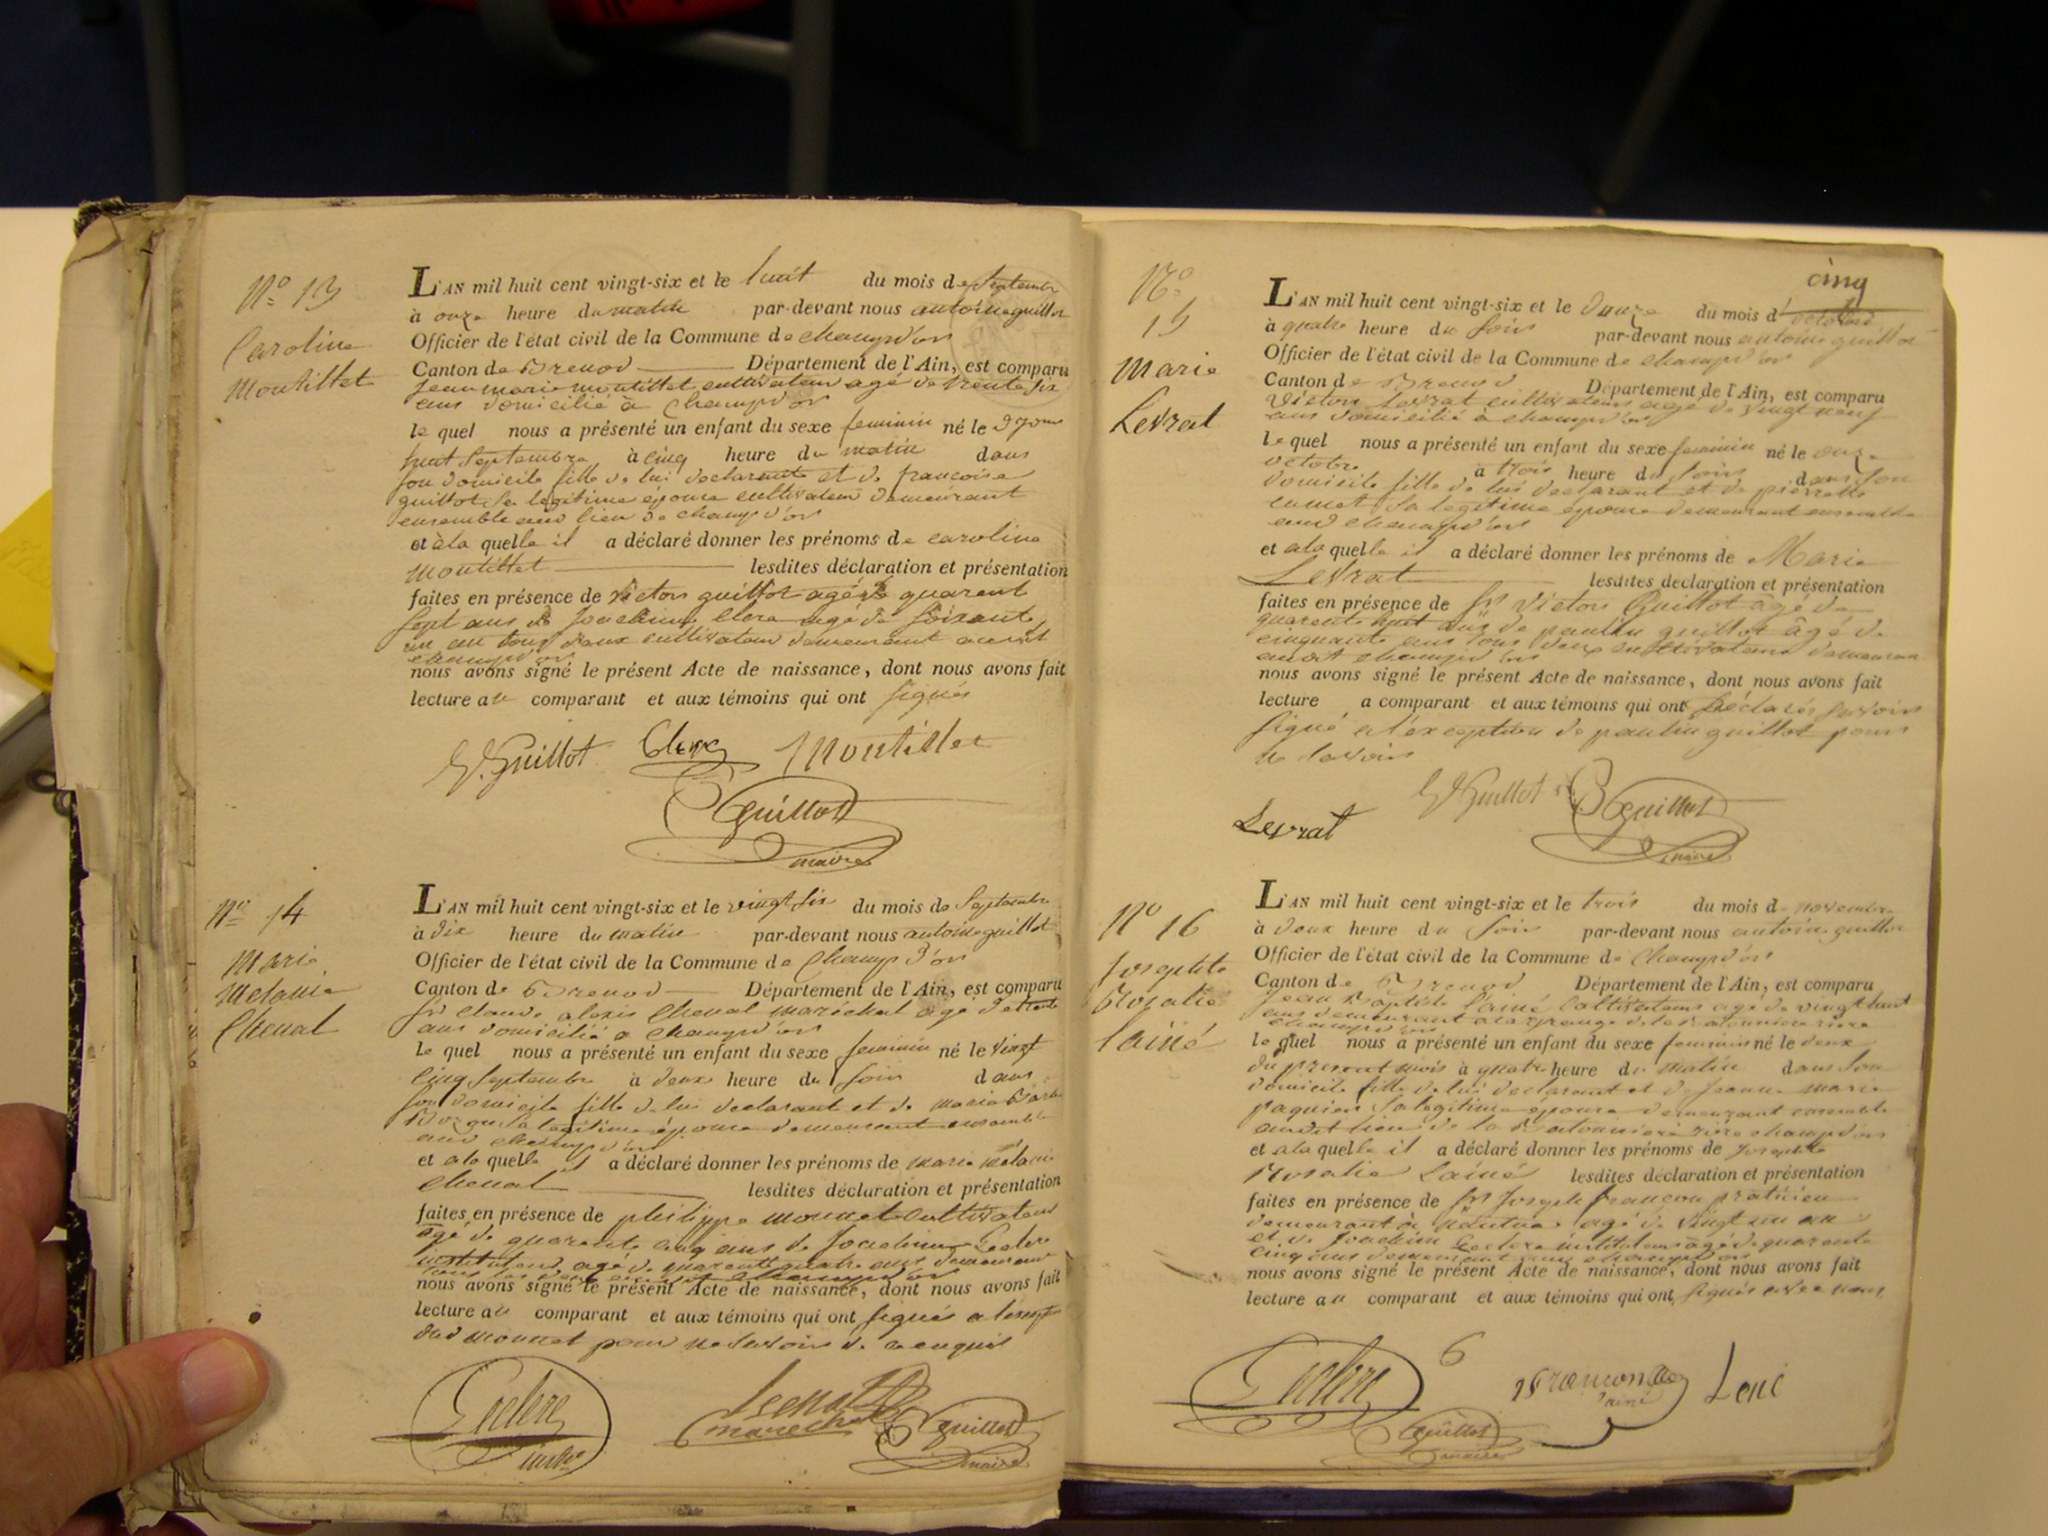 N.º 13
Caroline
Montillet
L'AN mil huit cent vingt-six et le huit du mois de Septembre
à onze heure du matin par-devant nous antoine guillot
Officier de l'état civil de la Commune de champd'or
Canton de Brenod Département de l'Ain, est comparu
jean marie montillet cultivateur agé de trente six
ans domicilié à champd'or
le quel nous a présenté un enfant du sexe feminin né le
huit Septembre à cinq heure du matin dans
son domicile fille de lui declarant et de francoise
guillot sa legitime épouse cultivateur demeurant
ensemble au lieu de champd'or
et à la quelle il a déclaré donner les prénoms de caroline
montillet lesdites déclaration et présentation
faites en présence de victor guillot agé de quarent
sept ans de joachim clerc agé de soixante
un an tous deux cultivateur demeurant
champd'or
nous avons signé le présent Acte de naissance, dont nous avons fait
lecture au comparant et aux témoins qui ont signés
V. Guillot Clerc Montillet
Guillot
maire
N.º 14
Marie
Melanie
Chenal
L'AN mil huit cent vingt-six et le vingt six du mois de Septembre
à dix heure du matin par-devant nous antoine guillot
Officier de l'état civil de la Commune de Champ d'or
Canton de Brenod Département de l'Ain, est comparu
sr claude alexis Chenal maréchal agé de trente
ans domicilié a champd'or
le quel nous a présenté un enfant du sexe feminin né le vingt
cinq Septembre à deux heure du soir dans
son domicile fille de lui declarant et de marie
sa legitime épouse demeurant ensemble
aud champd'or
et a la quelle il a déclaré donner les prénoms de marie melanie
Chenal lesdites déclaration et présentation
faites en présence de philippe monnet cultivateur
agé de quarente cinq ans de Joachim Leclerc
instituteur agé de quarente quatre ans demeurant
champd'or
nous avons signé le présent Acte de naissance, dont nous avons fait
lecture au comparant et aux témoins qui ont signés a lexeption
dud monnet pour ne savoir de ce enquis
Leclerc
Chenal
marechal
Guillot
maire
cinq
N.º
15
Marie
Levrat
L'AN mil huit cent vingt-six et le douze du mois d'octobre
à quatre heure du soir par-devant nous antoine guillot
Officier de l'état civil de la Commune de champd'or
Canton de Brenod Département de l'Ain, est comparu
Victor Levrat cultivateur agé de vingt neuf
ans domicilié à champd'or
le quel nous a présenté un enfant du sexe feminin né le onze
octobre à trois heure du soir dans son
domicile fille de lui declarant et de pierrette
sa legitime épouse demeurant ensemble
aud champd'or
et a la quelle il a déclaré donner les prénoms de Marie
Levrat lesdites déclaration et présentation
faites en présence de srs Victor Guillot âgé de
quarente huit ans de paulin guillot âgé de
cinquante ans tous deux cultivateurs demeuran
audit champd'or
nous avons signé le présent Acte de naissance, dont nous avons fait
lecture a comparant et aux témoins qui ont Déclarés savoir
signé a l'exception de paulin guillot pour
ne savoir
Levrat
V. Guillot
Guillot
maire
N.º 16
Josephte
Rosalie
Lainé
L'AN mil huit cent vingt-six et le trois du mois de novembre
à deux heure du soir par-devant nous antoine guillot
Officier de l'état civil de la Commune de Champd'or
Canton de Brenod Département de l'Ain, est comparu
Jean Baptiste Lainé Cultivateur agé de vingt huit
ans demeurant a la grange de la
champd'or
le quel nous a présenté un enfant du sexe feminin né le deux
du present mois à quatre heure du matin dans son
domicile fille de lui declarant et de jeanne marie
paquier sa legitime épouse demeurant ensemble
audit lieu de la rière champd'or
et a la quelle il a déclaré donner les prénoms de Josephte
Rosalie Lainé lesdites déclaration et présentation
faites en présence de srs Joseph francon praticien
demeurant à nantua agé de vingt un an
et de Joachim Leclerc instituteur agé de quarente
cinq ans demeurant
nous avons signé le présent Acte de naissance, dont nous avons fait
lecture au comparant et aux témoins qui ont signés avec nous
Leclerc
6
Francon
Lainé
Guillot
maire